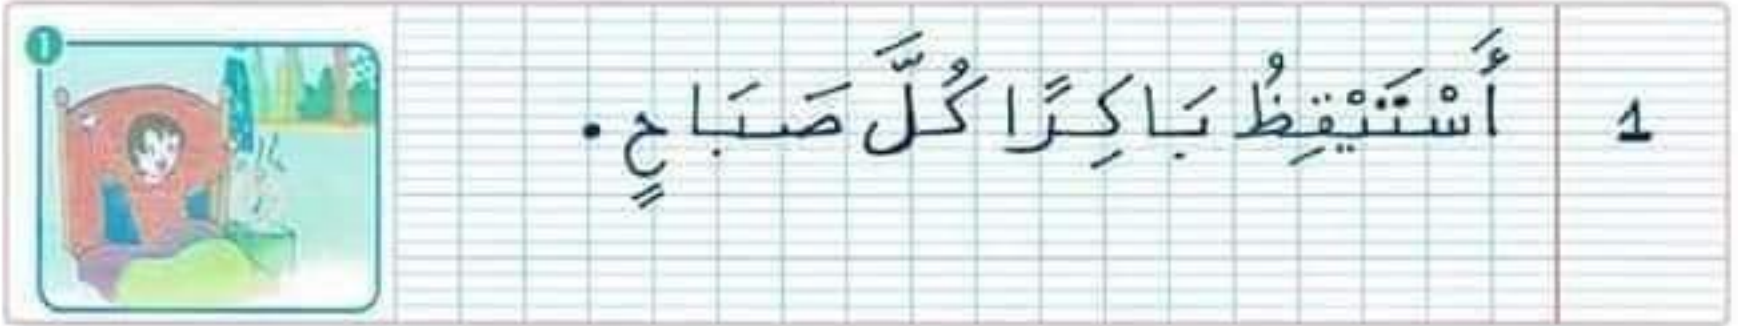 1 أَسْتَيْقِظُ بَاكِرًا كُلَّ صَبَاحٍ.
1